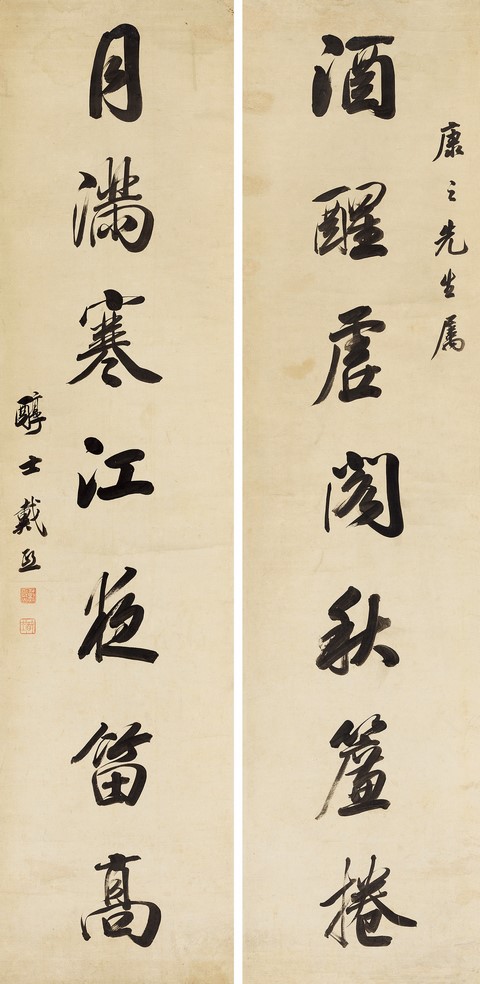 康之先生属
酒醒虛閣秋簾捲
月滿寒江夜笛高
醇士戴熙